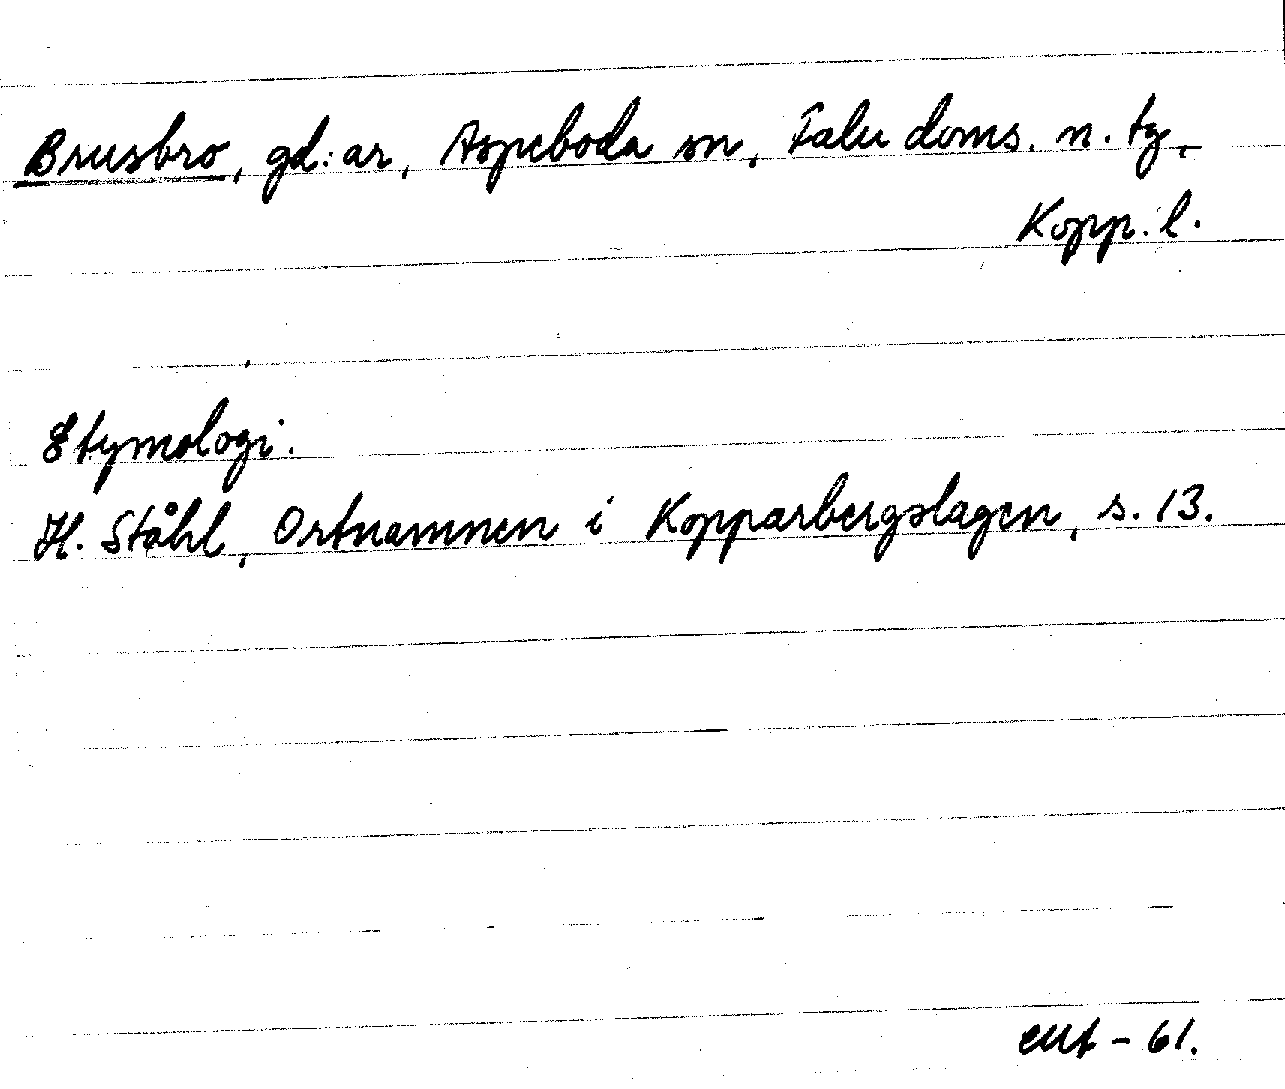 Brusbro, gd:ar, Aspeboda sn, Falu doms. n. tg,
Kopp. l.
Etymologi.
H. Ståhl, Ortnamnen i Kopparbergslagen, s. 13.
- 61.